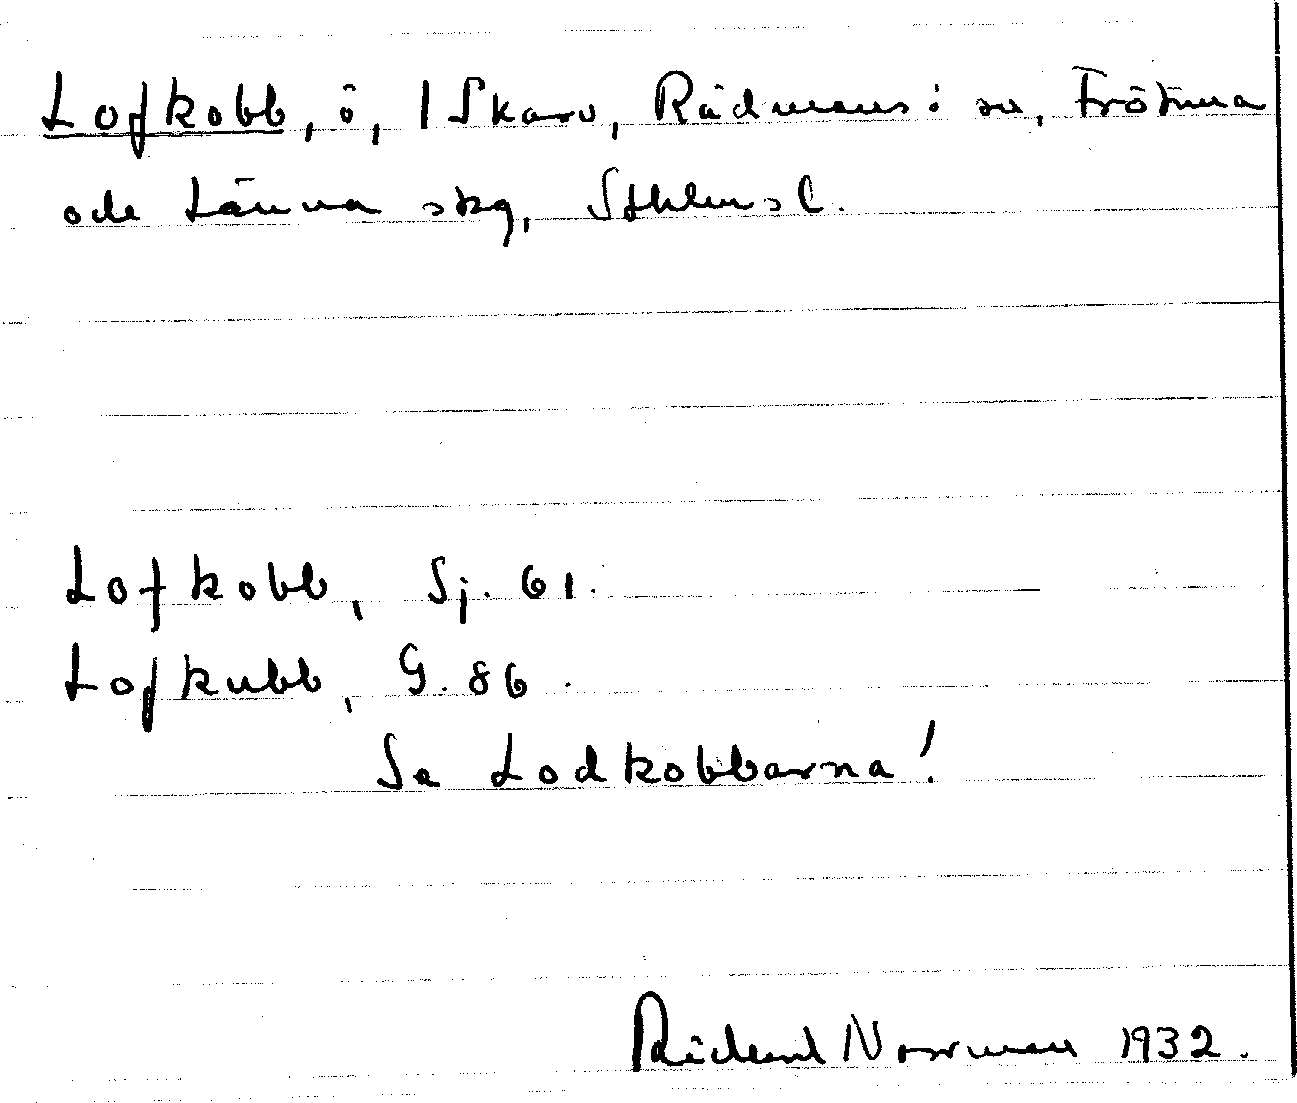 Lofkobb, ö, 1 Skarv, Rådmansö sn, Frötuna
och Länna skg, Sthlms l.
Lofkobb, Sj. 61.
Lofkubb, G. 86.
Se Lodkobbarna!
Rickard Norrman 1932.